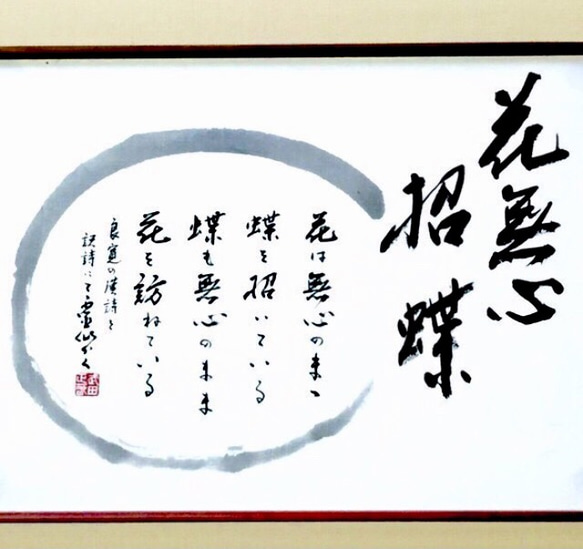 花無心
招蝶
花は無心のまゝ
蝶を招いている
蝶も無心のまま
花を訪ねている
良寛の漢詩を
訳詩にて